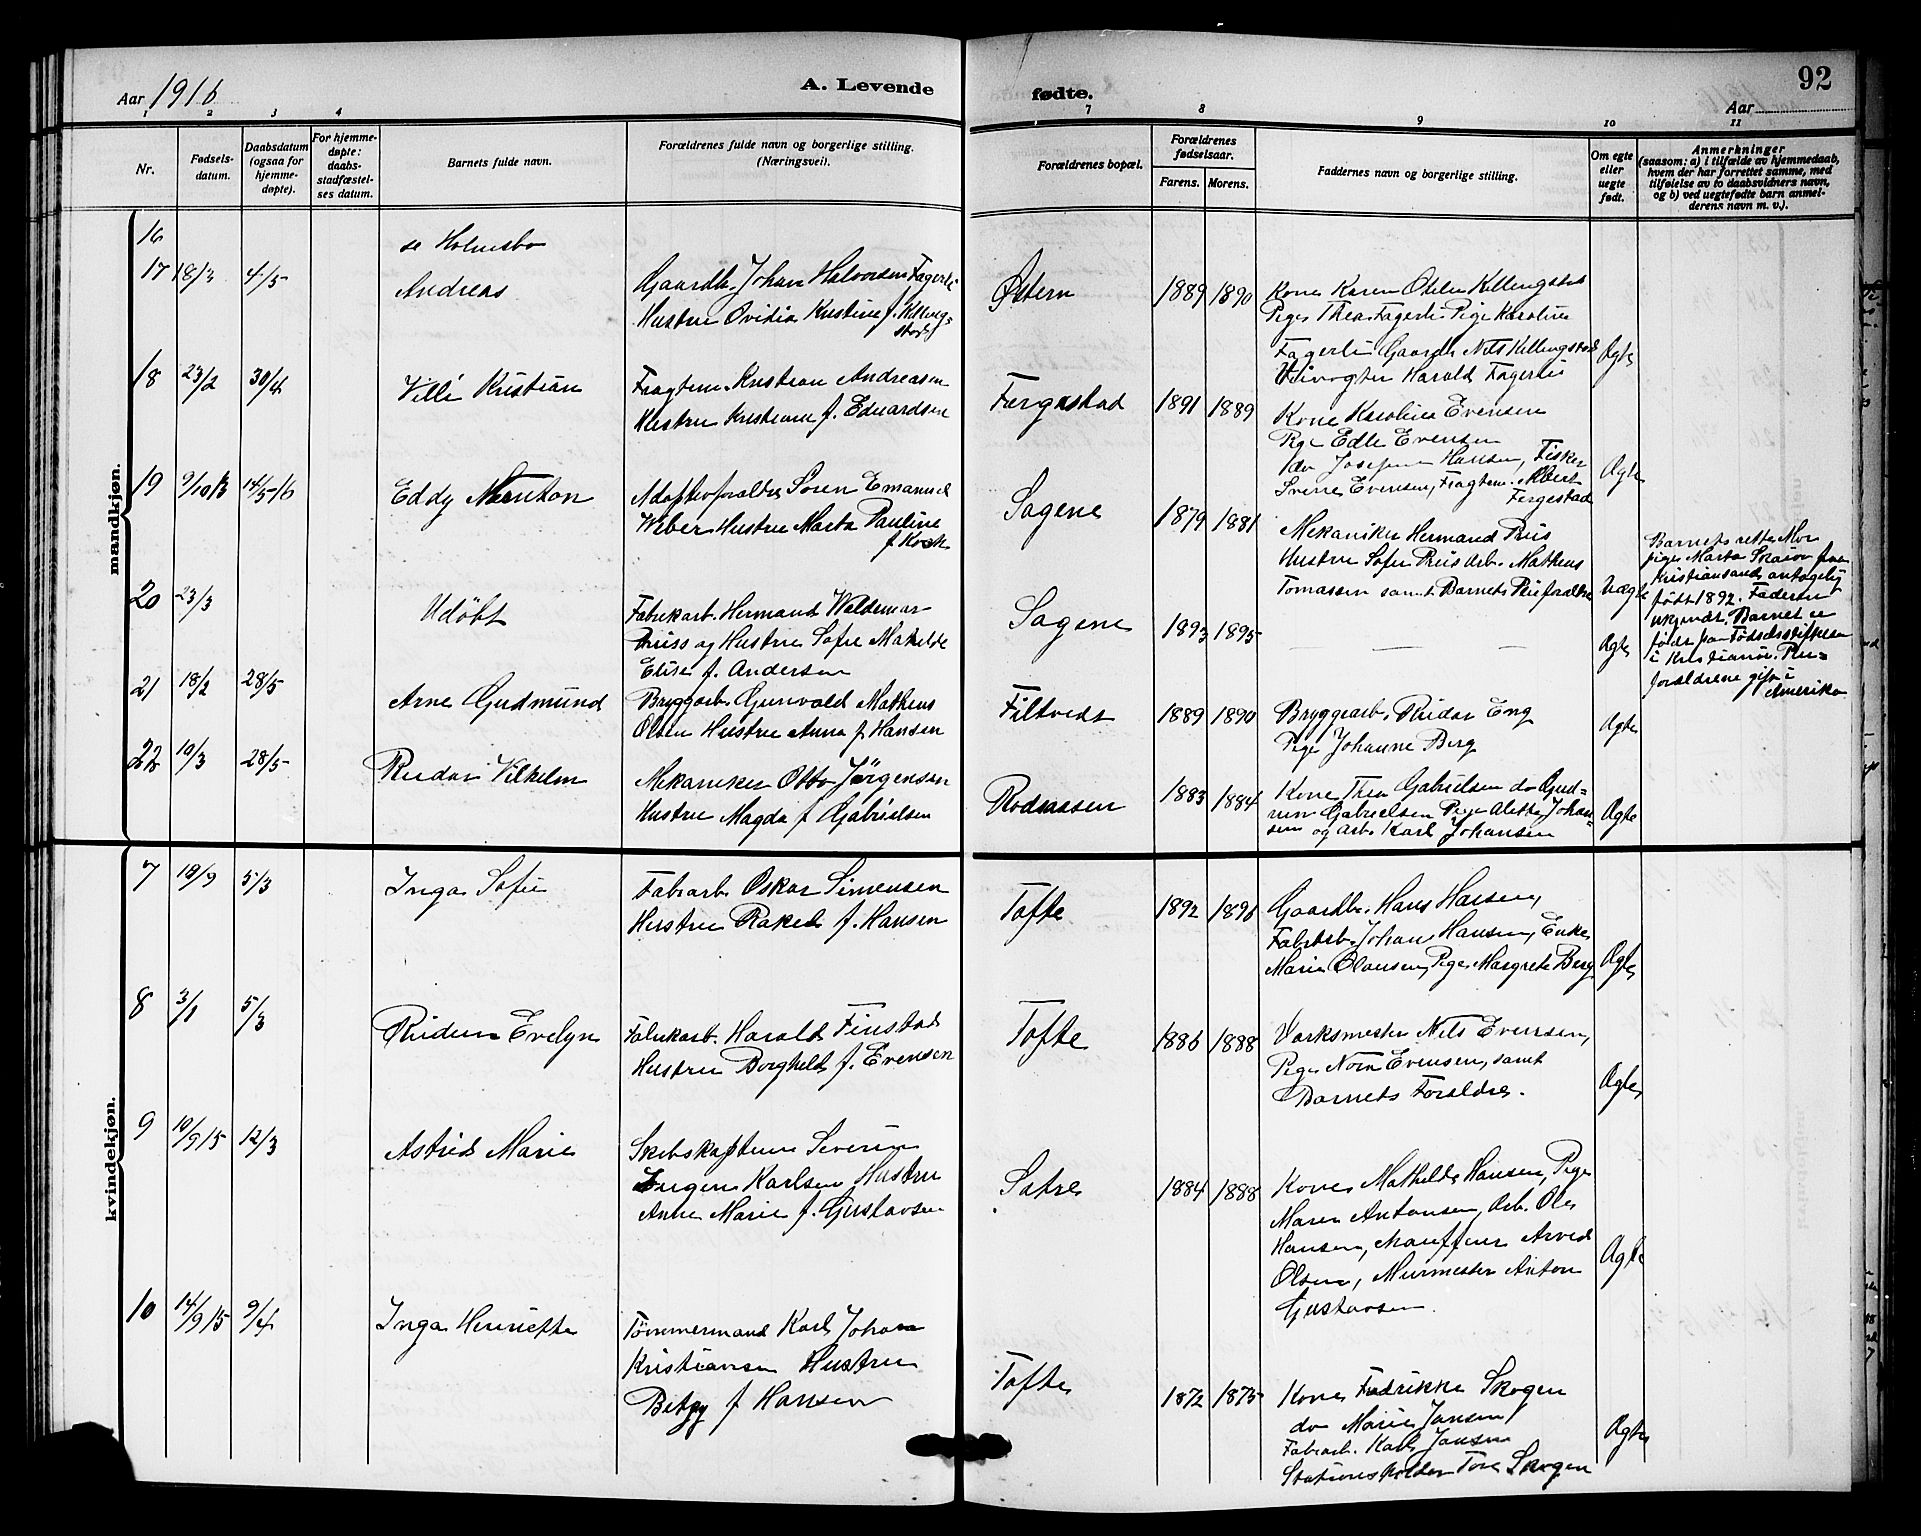 Aar 1916
A. Levende
fødte.
Aar
92
1 2 3 4 7 8 9 10 11
Nr.
Fødsels-
datum.
Daabsdatum
(ogsaa for
hjemme-
døpte).
For hjemme-
døpte:
daabs-
stadfæstel-
ses datum.
Barnets fulde navn.
Forældrenes fulde navn og borgerlige stilling.
(Næringsvei).
Forældrenes bopæl.
Forældrenes
fødselsaar.
Farens. Morens.
Faddernes navn og borgerlige stilling.
Om egte
eller
uegte
født.
Anmerkninger
(saasom: a) i tilfælde av hjemmedaab,
hvem der har forrettet samme, med
tilføielse av to daabsvidners navn,
og b) ved uegtefødte barn anmel-
derens navn m. v.).
mandkjøn.
16
se Holmsbo
17 18/3 4/5
Andreas
Gaardb. Johan Halvorsen Fagerli
Hustru Ovidia Kristine f. Killing-
stad
Østern
1889 1890
Kone Karen Otelie Killingstad
Pige Thea Fagerli Pige Karoline
Fagerli Gaardb. Nils Killingstad
Harald Fagerli
Ægte
18 23/2 30/4
Villi Kristian
Fragtem. Kristian Andreasen
Hustru Kristiane f. Eduardsen
Færgestad
1891 1889
Kone Karoline Evensen
Pige Edle Evensen
do Josefine Hansen, Fisker
Sverre Evensen, Fragtem. Albert
Fergestad
Ægte
19 9/10 13 14/5 16
Eddy
Adoptivforældre Sören Emanuel
Weber Hustru Marta Pauline
f. Koch
Sagene
1879 1881
Mekaniker Hermand Prüs
Hustru Sofie Prüs Arb. Matheus
Tomassen samt Barnets Pleiforældre
Uægte
Barnets rette Mor
pige Marta fra
Kristiansand, antagelig
født 1892. Faderen
ukjendt. Barnet er
født paa Fødselsstiftelsen
i Kristiania. Plei-
forældrene gift i
Amerika
20 23/3
Udöbt
Fabrikarb. Hermand Waldemar
Priss og Hustru Sofie Matilde
Elise f. Andersen
Sagene
1893 1895
— — —
Ægte
21 18/2 28/5
Arne Gudmund
Bryggearb. Gunvald Matheus
Olsen Hustru Anna f. Hansen
Filtvedt
1889 1890
Bryggearb. Reidar Eng
Pige Johanne Berg
Ægte
22 19/3 28/5
Reidar Vilhelm
Mekaniker Otto Jörgensen
Hustru Magda f. Gabrielsen
Rodnassen
1883 1884
Kone Thea Gabrielsen do Gud-
run Gabrielsen Pige Alette Johan-
sen og arb. Karl Johansen
Ægte
kvindekjøn.
7 19/9 5/3
Inga Sofie
Fabrarb. Oskar Simensen
Hustru Rakel f. Hansen
Tofte
1892 1896
Gaardb. Hans Hansen,
Fabrarb. Johan Hansen, Enke
Marie Olausen, Pige Margrete Berg
Ægte
8 3/1 5/3
Reidun Evelyn
Fabrikarb. Harald Finstad
Hustru Borghild f. Evensen
Tofte
1886 1888
Værksmester Nils Evensen,
Pige Norn Evensen, samt
Barnets Forældre.
Ægte
9 10/9 15 12/3
Astrid Marie
Skibskaptein Severin
Ingen Karlsen Hustru
Anne Marie f. Gustavsen
Sætre
1884 1888
Kone Mathilde Hansen, Pige
Maren Antonsen, Arb. Ole
Hansen, Chauffeur Arved
Olsen, Murmester Anton
Gustavsen.
Ægte
10 14/9 15 9/4
Inga Henriette
Tömmermand Karl Johan
Kristiansen Hustru
Betzy f. Hansen
Tofte
1872 1875
Kone Fredrikke Skogen
do Marie Jansen
Fabrarb. Karl Jansen
Stationsholder Tore Skogen
Ægte